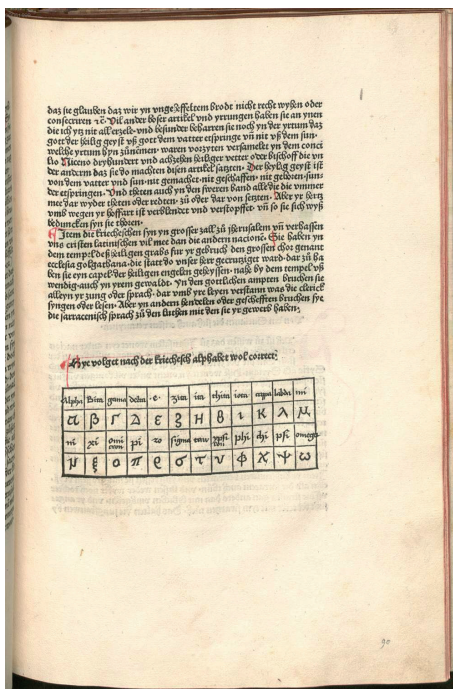 daz sie glauben daz wir yn vngeheffeltem brodt nicht recht wyhen oder
consecriren ⁊c̄ Vil ander böser artikel vnd yrrungen haben sie an ynen
die ich ytz nit all erzele vnd besunder beharren sie noch yn der yrtum daz
gott der heilig geyst vß gott dem vatter entspringe vn̄ nit vß dem sun
welche yrtum hyn zůnemen waren vorzyten versamelt yn dem conci
lio Niceno dryhundert vnd achzehen heiliger vetter oder bischoff die vn
der anderm daz sie do machten disen artikel satzten Der heylig geyst ist
von dem vatter vnd sun nit gemacht nit geschaffen nit geborn sun
der entspringen Vnd theten auch yn den sweren band alle die die vmmer
me dar wyder theten oder redten zů oder dar von setzten Aber yr hertz
vmb wegen yr hoffart ist verblendet vnd verstopffet vn̄ so sie sich wyß
beduncken syn sie thoren
Item die kriecheschen syn yn grosser zall zů Jherusalem vn̄ verhassen
vns cristen latinischen vil mee dan die andern nacione Sie haben yn
dem tempel deß heiligen grabs fur yr gebruch den grossen chor genant
ecclesia golgathana die statt do vnser herr gecrutziget ward dar zů ha
ben sie eyn capel der heiligen engelen geheyssen nahe by dem tempel vß
wendig auch yn yrem gewalt Yn den gottlichen ampten bruchen sie
alleyn yr zung oder sprach dar vmb yre leyen verstann was die clerick
syngen oder lesen Aber yn andern hendelen oder gescheften bruchen sye
die sarracenisch sprach zů den luthen mit den sie yr gewerb haben
Hye volget nach der kriechesch alphabet wol correct
Alpha Bita gama delta e zita ita thita iota cappa labda mi
α β Γ Δ ε ζ Η θ ι κ λ μ
ni xi omicron pi ro sigma tau ypsilon phi chi psi omega
ν ξ ο π ϱ σ τ υ φ χ ψ ω
90